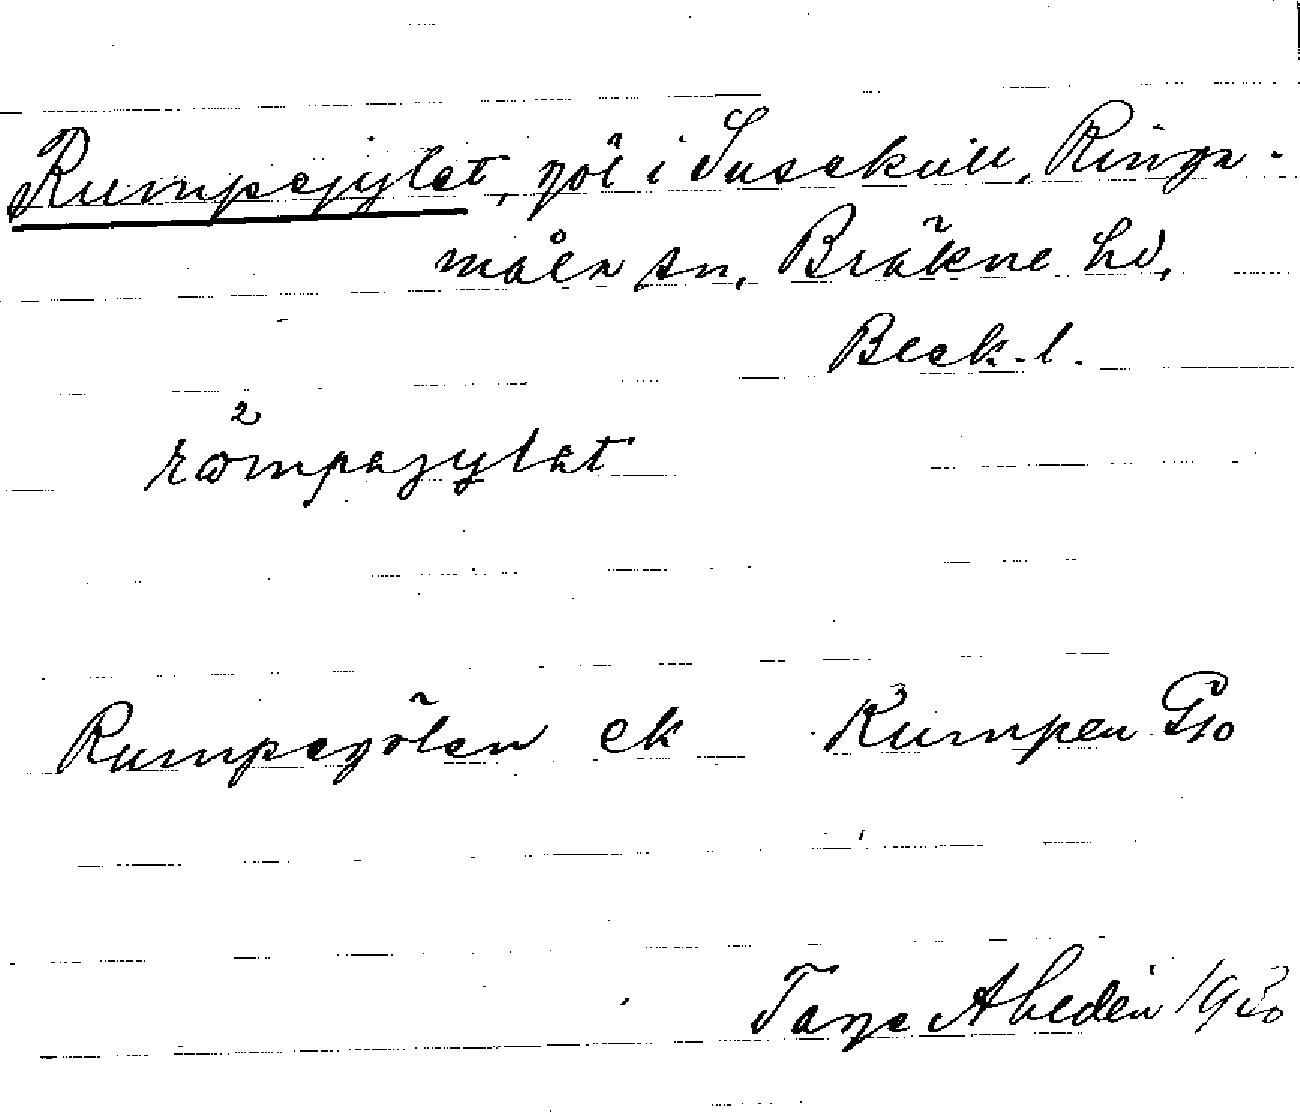 Rumpagylet, göl i Susekull, Ringa-
måla sn, Bräkne hd,
Blek. l.
2
römpagylat
Rumpegölen ek Rumpen Gso
Tage Ahledén 1930